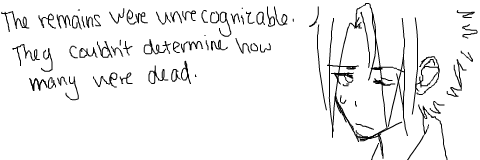 The remains were unrecognizable.
They couldn't determine how
many were dead.